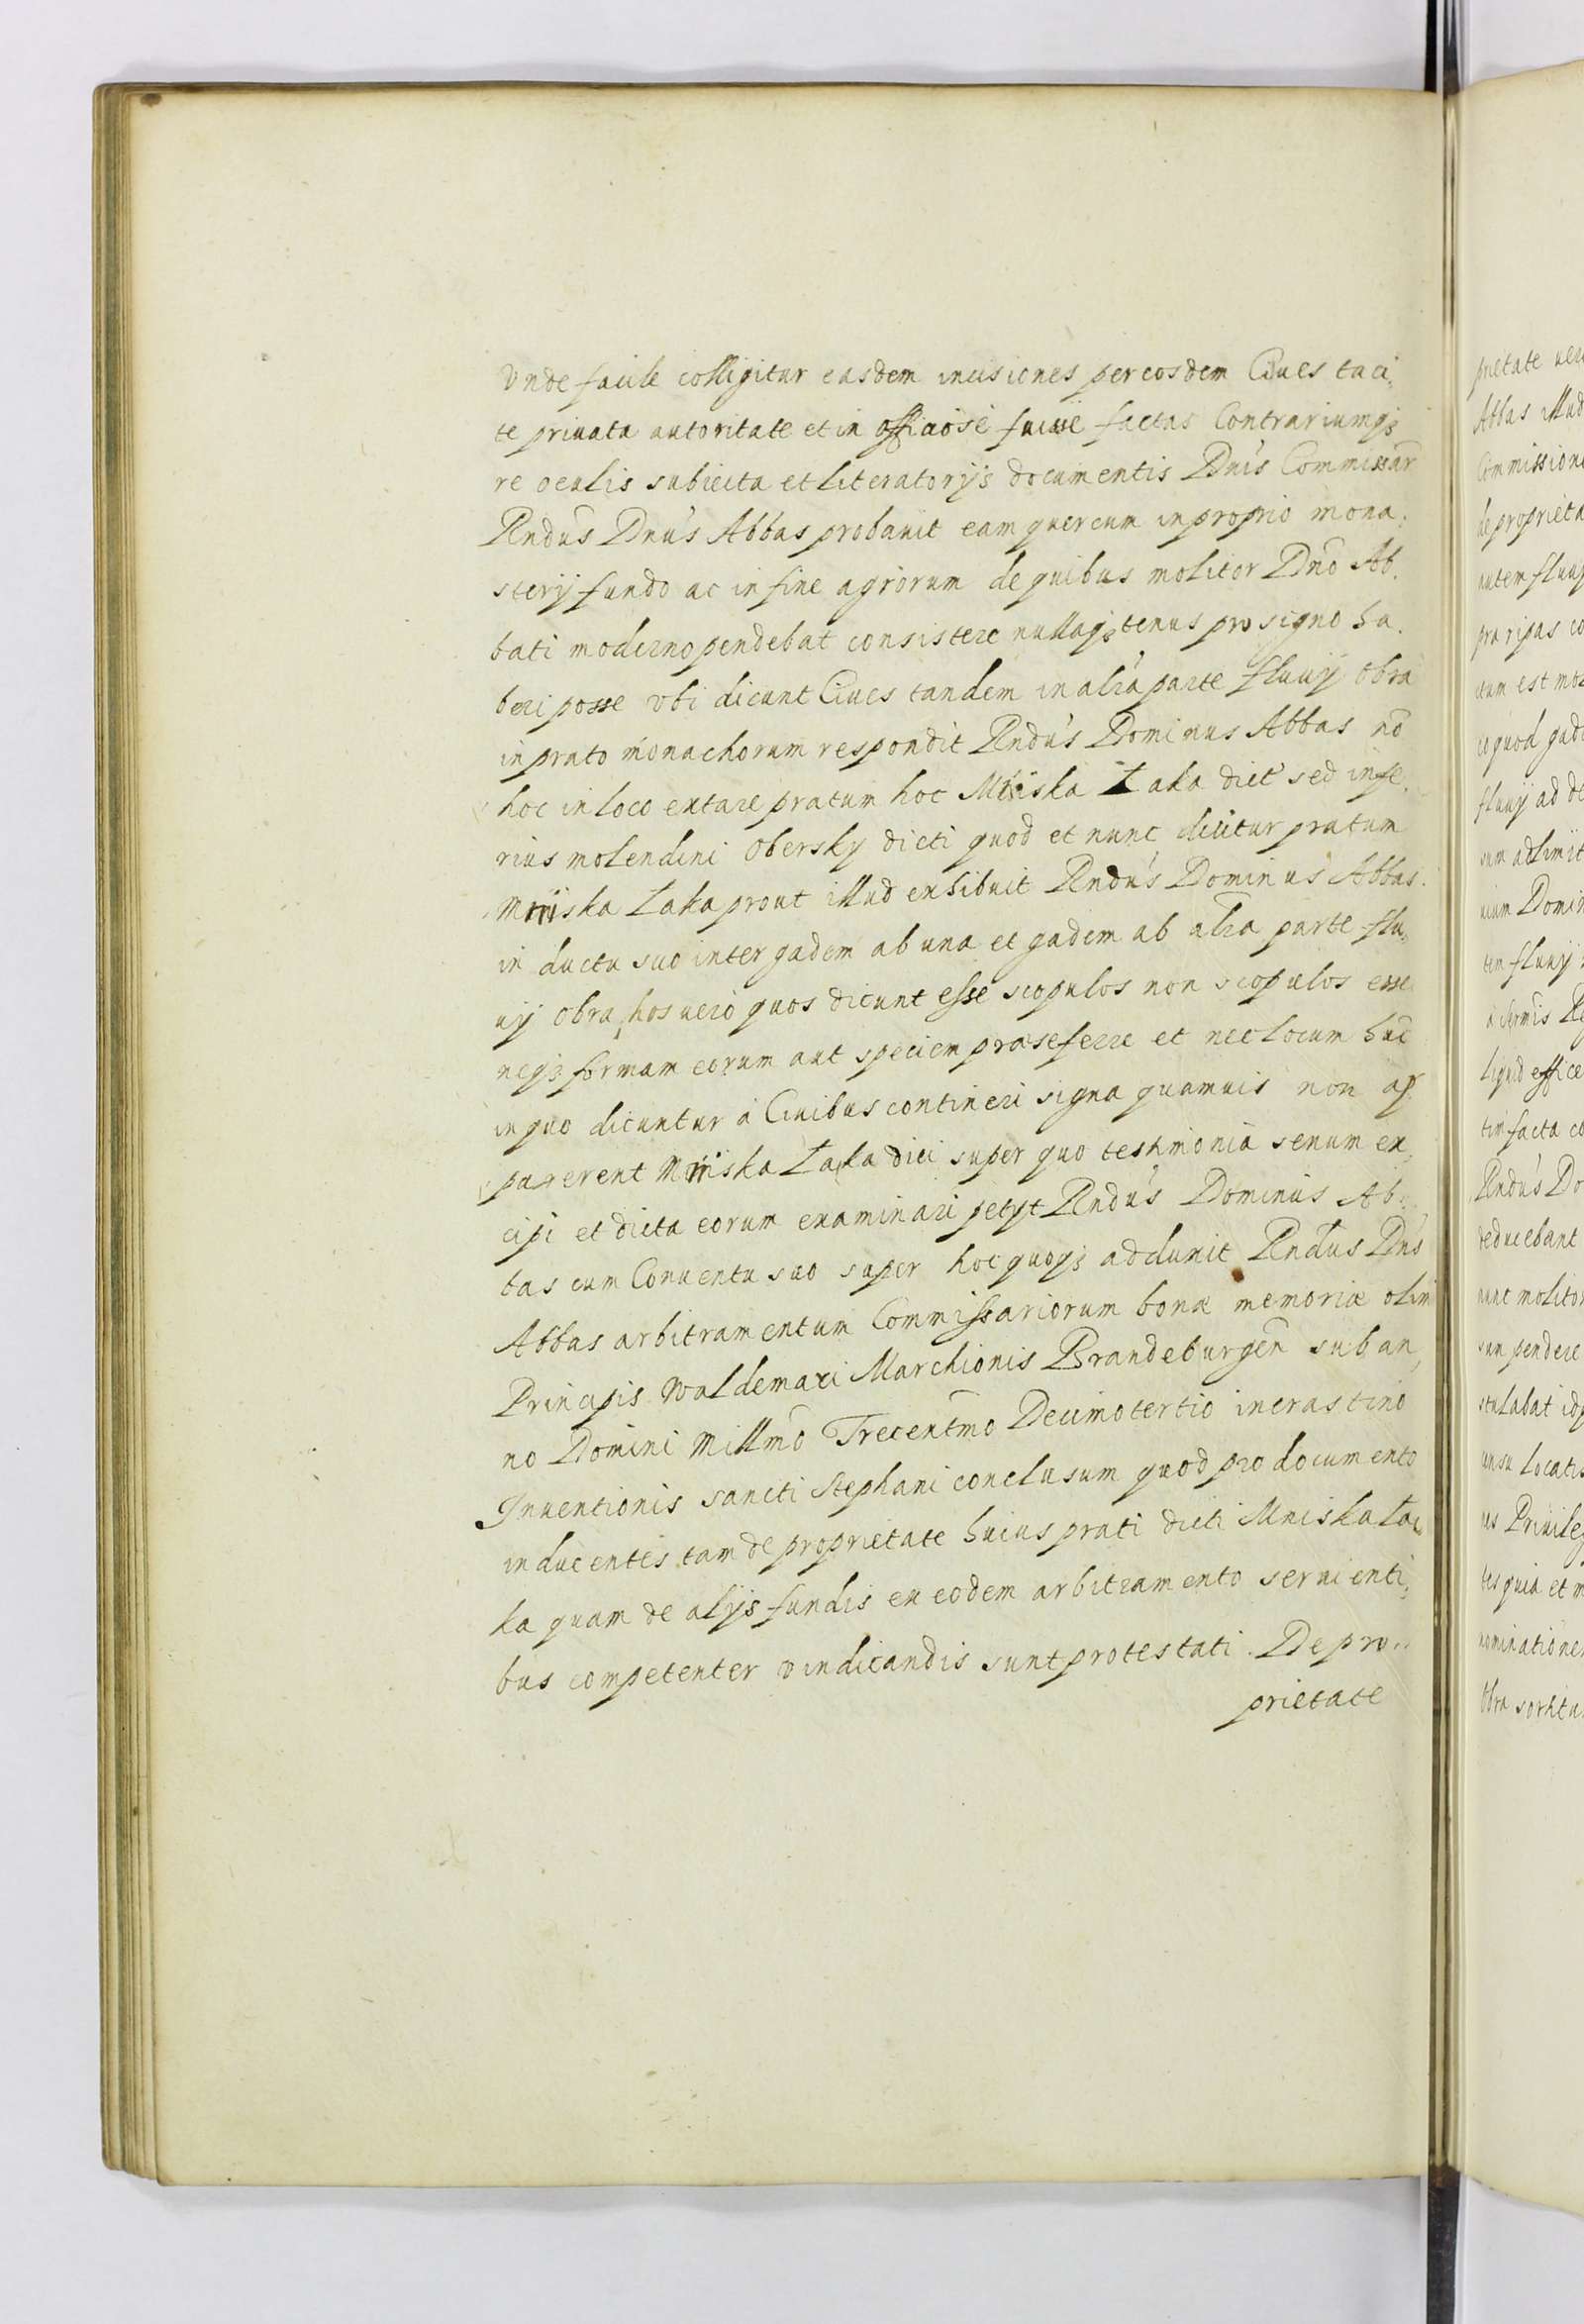 Vnde facile colligitur easdem incisiones per eosdem Ciues taci,
te priuata autoritate et in officiose fuisse factas Contrariumq;
re oculis subiecta et literatorijs documentis Dnis Commissar
Rndus Dnus Abbas probauit eam quercum in proprio mona,
sterij fundo ac in fine agrorum de quibus molitor Dno Ab,
bati moderno pendebat consistere nullaq; tenus pro signo ha,
beri posse vbi dicunt Ciues tandem in alia parte fluuij Obra
in prato monachorum respondit Rndus Dominus Abbas no
hoc in loco extare pratum hoc Mniska Łaka dict sed infe,
rius molendini Obersky dicti quod et nunc dicitur pratum
Mniska Łaka prout illud exhibuit Rndus Dominus Abbas
in ductu suo inter gadem ab una et gadem ab alia parte flu,
uij Obra, hos uero quos dicunt esse scopulos non scopulos esse
neq; formam eorum aut speciem præseferre et nec locum huc
in quo dicuntur à Ciuibus contineri signa quamuis non ap
parerent Mniska Łaka dici super quo testimonia senum ex,
cipi et dicta eorum examinari petyt Rndus Dominus Ab,
bas cum Conuentu suo super hoc quoq; adduxit Rndus Dns
Abbas arbitramentum Commissariorum bonæ memoriæ olim
Principis Waldemari Marchionis Brandeburgen sub an,
no Domini Millmo Trecentmo Decimotertio in crastino
Inuentionis sancti Stephani conclusum quod pro documento
inducentes tam de proprietate huius prati dicti Mniska Ła,
ka quam de alijs fundis ex eodem arbitramento seruienti,
bus competenter vindicandis sunt protestati. De pro,,
prietate